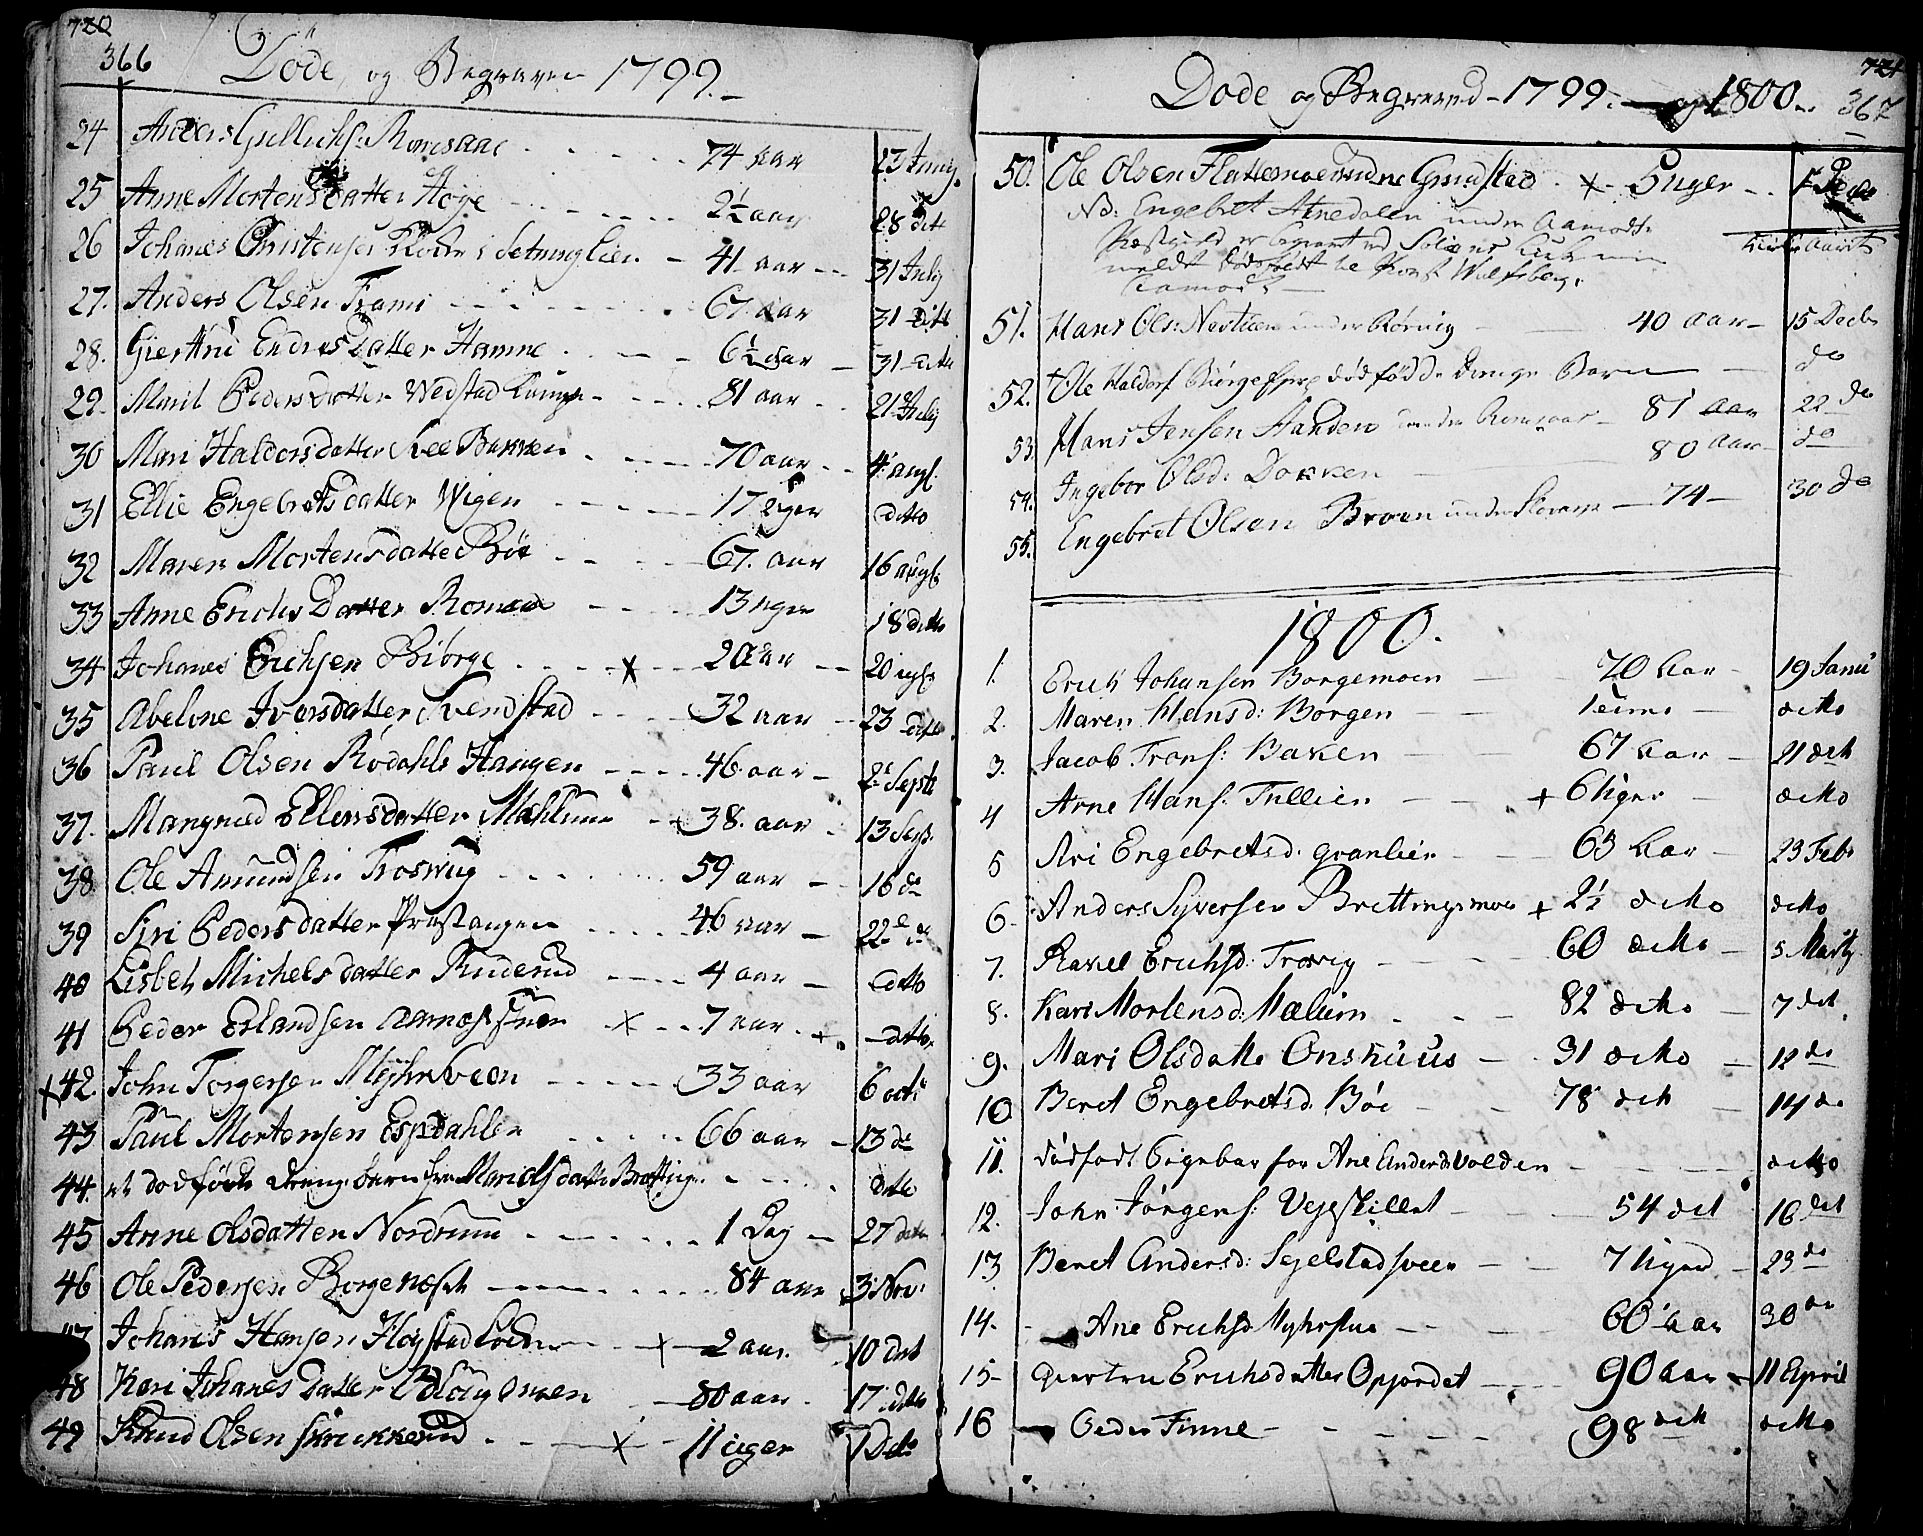 720
366 Döde og Begraven 1799.
24 Anders Gullichs: Romsaas 74 aar 23 Juny.
25 Anne Mortensdatter Höye 2½ aar 28 dito
26 Johanes Christensen i Setninglien 41 aar 31 July
27. Anders Olsen Frami 67 aar 31 dito
28. Giertru EndresDatter Hamne 6½ aar 31 ditto
29. Marit Pedersdatter Wedstad 81 aar 21 July
30 Mari Haldorsdatter Lee Bakken 70 aar 4 augl.
31 Ellie Engebretsdatter Wigen 17 uger ditto
32 Maren MortensdatterBöe 67. aar 16 augl.
33 Anne Erichs Datter 13 uger 18 ditto
34 Johanes Erichsen Biörge x 20 aar 20
35 Abelone Iversdatter Svendstad 32 aar 23 ditto
36 Paul Olsen Rödahls Haugen 46 aar 2 Septb
37. Mangnild Ellensdatter Mæhlum 38. aar 13 Sept.
38 Ole Amundsen Troswig 59 aar 16 do
39 Siri Pedersdatter Præstangen 46 aar 22 do
40 Lisbeh Michelsdatter Ruderud 4 aar ditto
41 Peder Erlandsen x 7 aar ditto
x 42. John Torgersen 33 aar 6 octb
43 Paul Mortensen Espdahlen 66 aar 13 do
44. et dodföde drenge barn fra datter ditto
45 Anne Olsdatter Nordrum 1 Dag 27 ditto
46 Ole Pedersen Borgenæset 84 aar 3 Nov:
Johanes Hansen x 2 aar 10 det
48 Kari Johanes Datter 80 aar 17 ditto
49 Knud Olsen x 11 uger 1 Debr
721
Döde og Begraved 1799. og 1800. 367
50. Ole Olsen Flattemoe under Grindstad x 5 uger 1
No: Engebret Arnedalen under Aamodts
Præstgield er begravet ved
meldt
Aamodt
51. Hans Ols: Nestuen under 40 aar 15 Decbr
52. Ole Haldors: dödföd de drenge Barn do
53. Hans Jensen under Romsaas 81 aar 22 do
54. Ingebor Olsd: Dokken 80 aar do
55. Engebret Olsen Broen under 74 30 do
1800.
1. Erich Johansen Borgemoen 70 Aar 19 Janu
2. Maren Hansd: Borgen ditto
3. Jacob Trons: Baken 67 Aar 21 dett
4 Arne Hans: Tullien + 6 Uger ditto
5 Ari Engebretsd: Granlien 63 Aar 23 Febr
6. Anders Syversen Brettingsmoe + 2½ ditto ditto
7. Rakel Erichsd: Troswig 60 ditto 5 Marty
8. Kari Mortensd: Mælum 82 ditto 7 det
9. Mari Olsdatte Onshuus 31 ditto 12 do
10 Beret Engebretsd. Böe 78 det 14 do
11. dödfödt Pigebar for Ane Andersd Volden ditto
12. John Jörgens: Vejeskillet 54 det 16 det
13 Beret Andersd: Segelstadsveen 7 Uger 23 do
14. Ane Erichsd Myhrstue 60 Aar 30 do
15 Giertru Erichsdatter Opjordet 90 Aar 11 April
16 Peder Finne 98 dett ditto